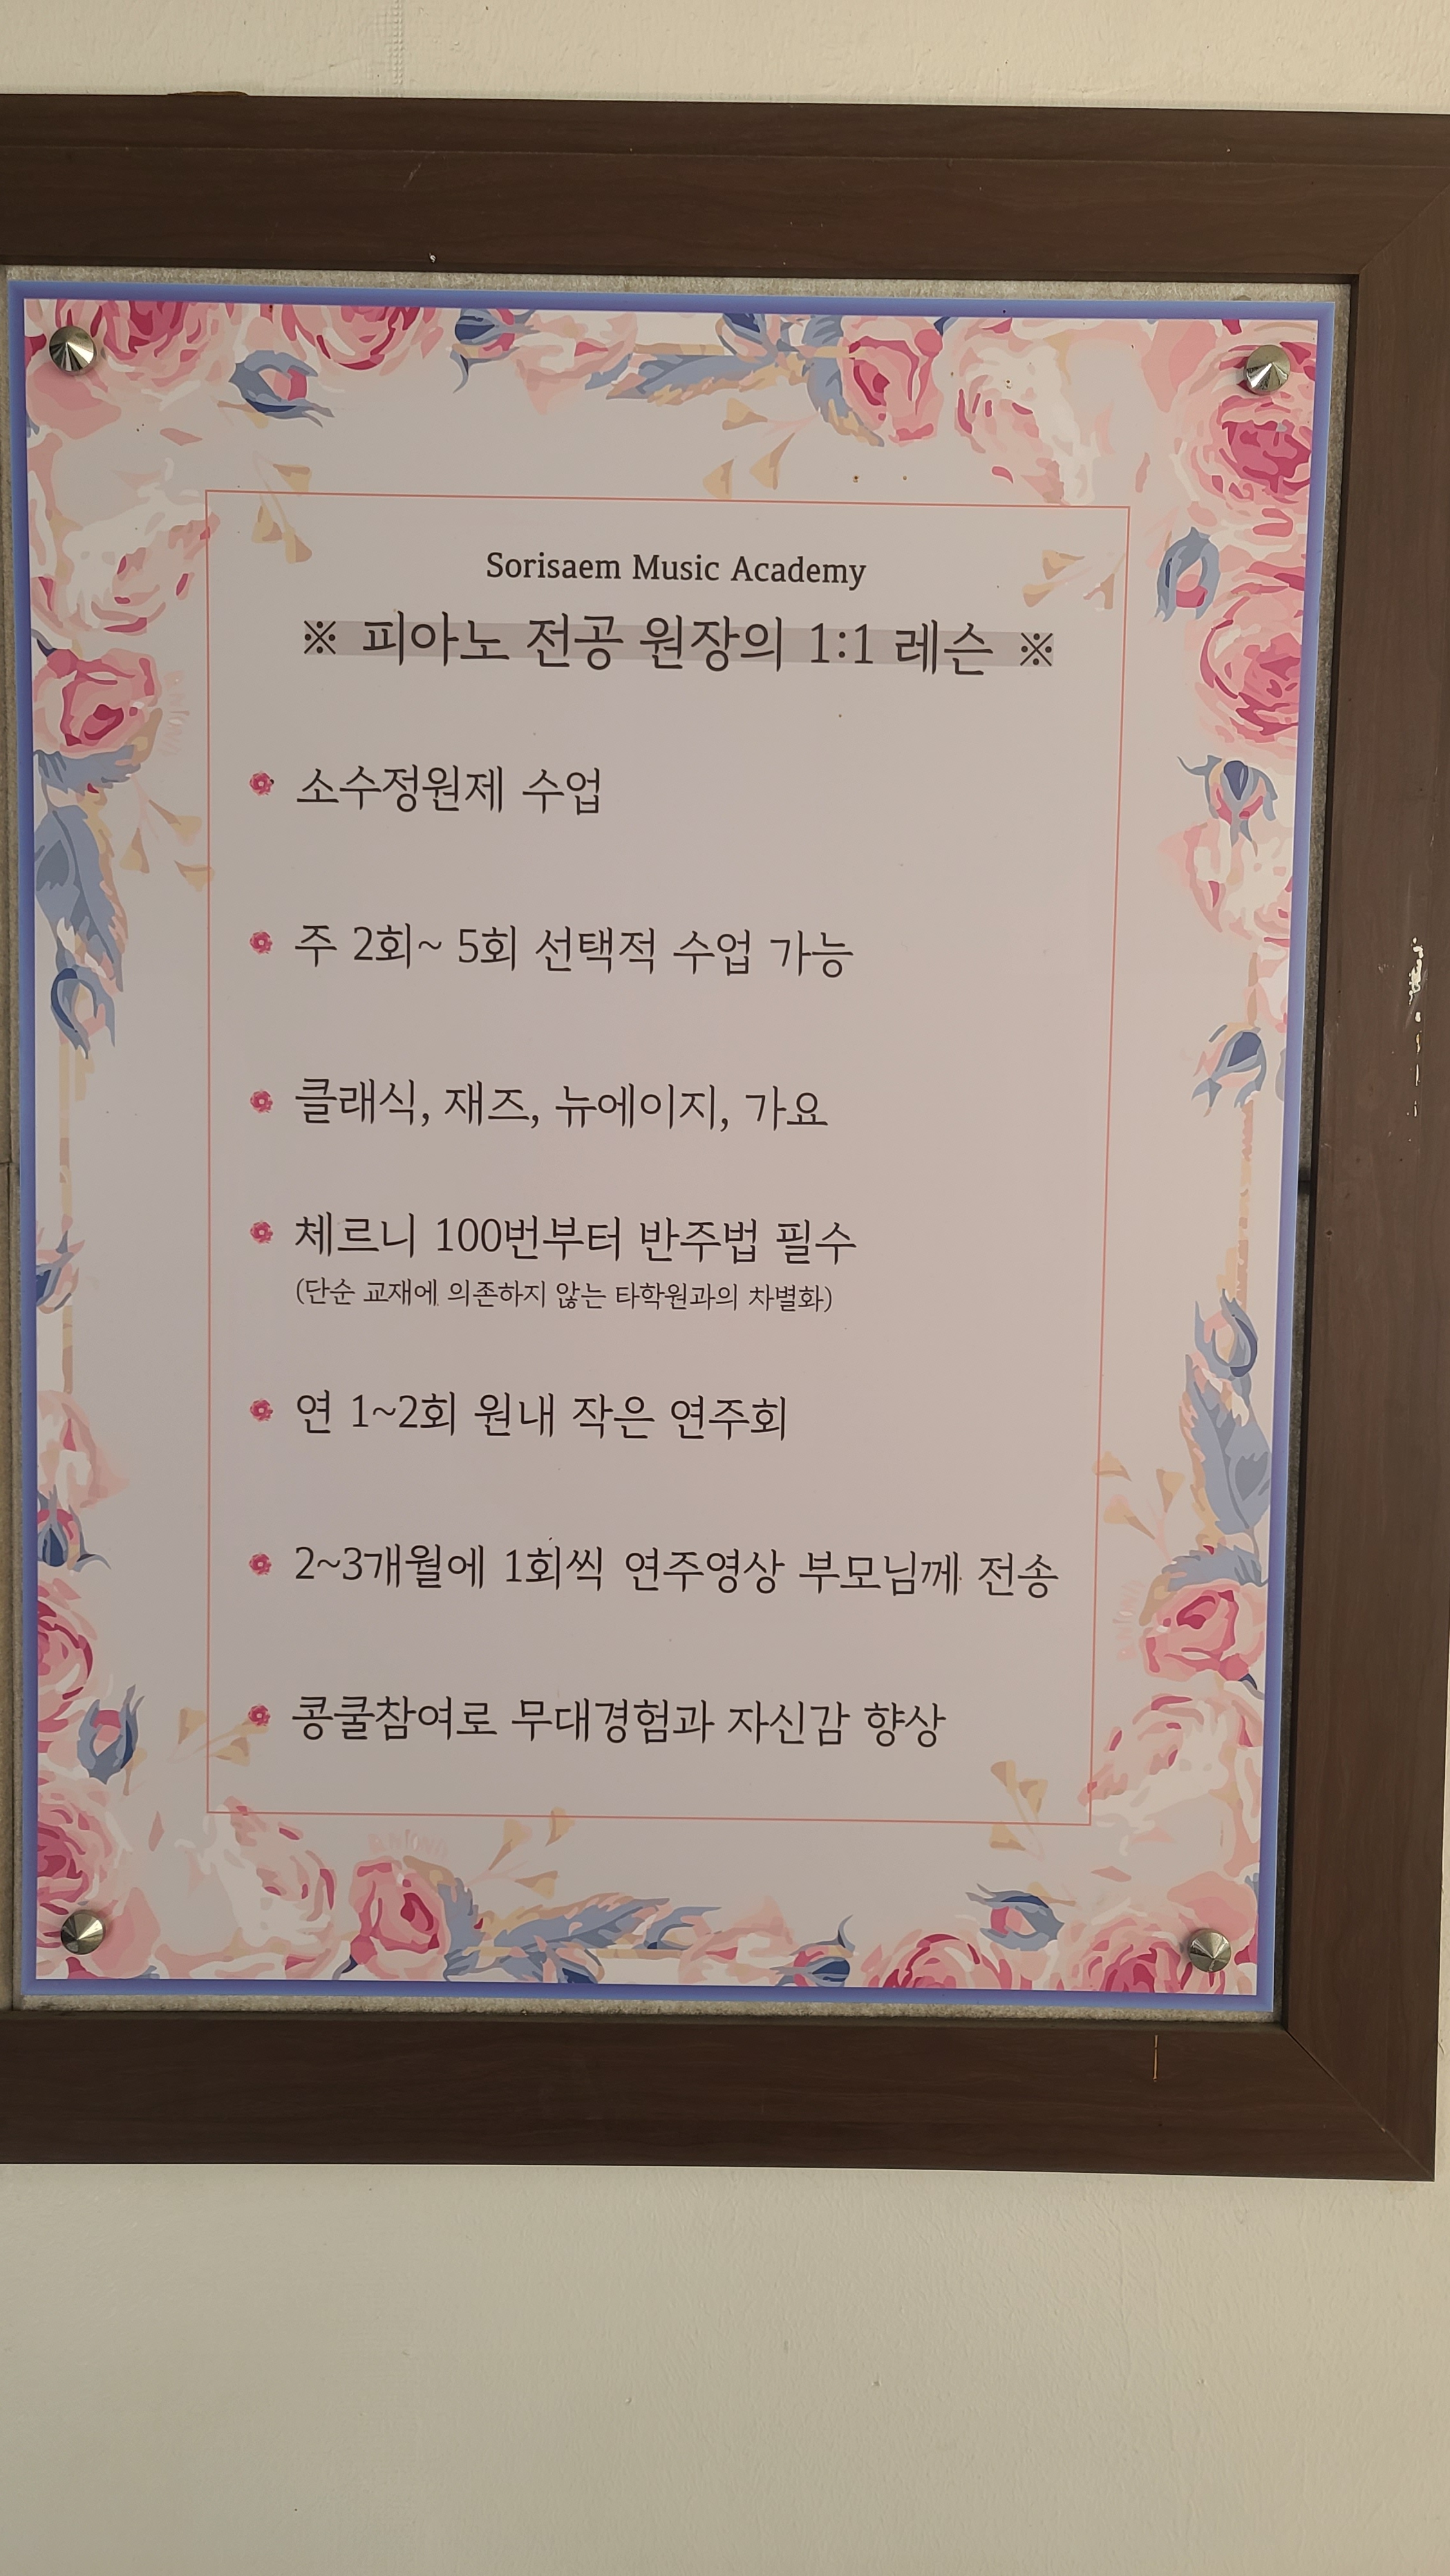 Sorisaem Music Academy
※ 피아노 전공 원장의 1:1 레슨 ※
소수정원제 수업
주 2회~ 5회 선택적 수업 가능
클래식, 재즈, 뉴에이지, 가요
체르니 100번부터 반주법 필수
(단순 교재에 의존하지 않는 타학원과의 차별화)
연 1~2회 원내 작은 연주회
2~3개월에 1회씩 연주영상 부모님께 전송
콩쿨참여로 무대경험과 자신감 향상